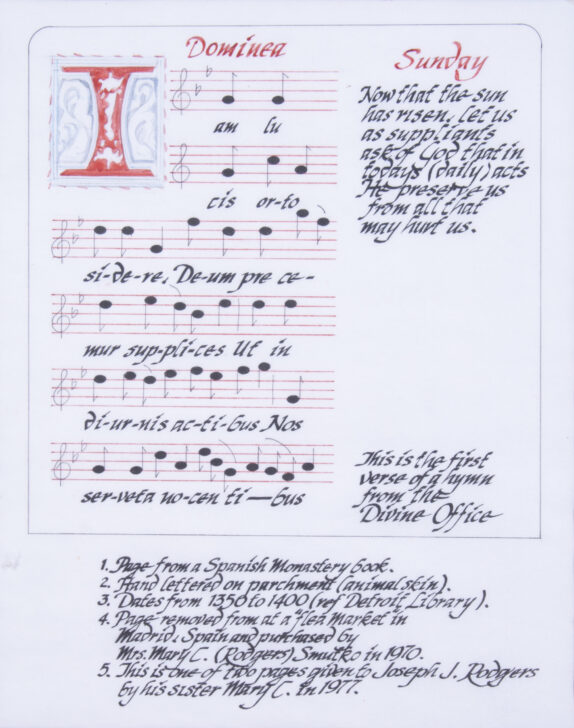 Dominca
I
am lu
cis or-to
si-de-re, De-um pre ce-
mur sup-pli-ces Ut in
di-ur-nis ac-ti-bus, Nos
ser-veta no-cen ti — bus
Sunday
Now that the sun
has risen, let us
as suppliants
ask of God that in
todays (daily) acts
He preserve us
from all that
may hurt us.
This is the first
verse of a hymn
from the
Divine Office
1. Page from a Spanish Monastery book.
2. Hand lettered on parchment (animal skin).
3. Dates from 1350 to 1400 (ref Detroit Library).
4. Page removed from at a flea Market in
Madrid, Spain and purchased by
Mrs. Mary C. (Rodgers) Smutko in 1970.
5. This is one of two pages given to Joseph J. Rodgers
by his sister Mary C. in 1977.